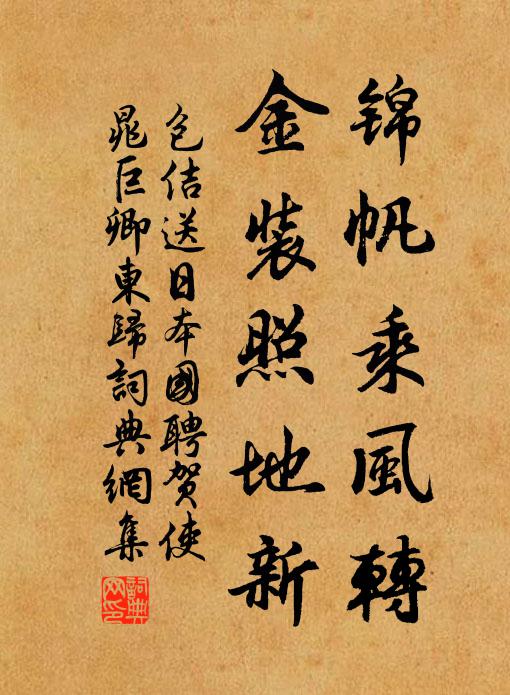 锦帆乘風轉
金裝照地新
包佶送日本國聘賀使
晁巨卿東歸詞典網集
詞典
网印